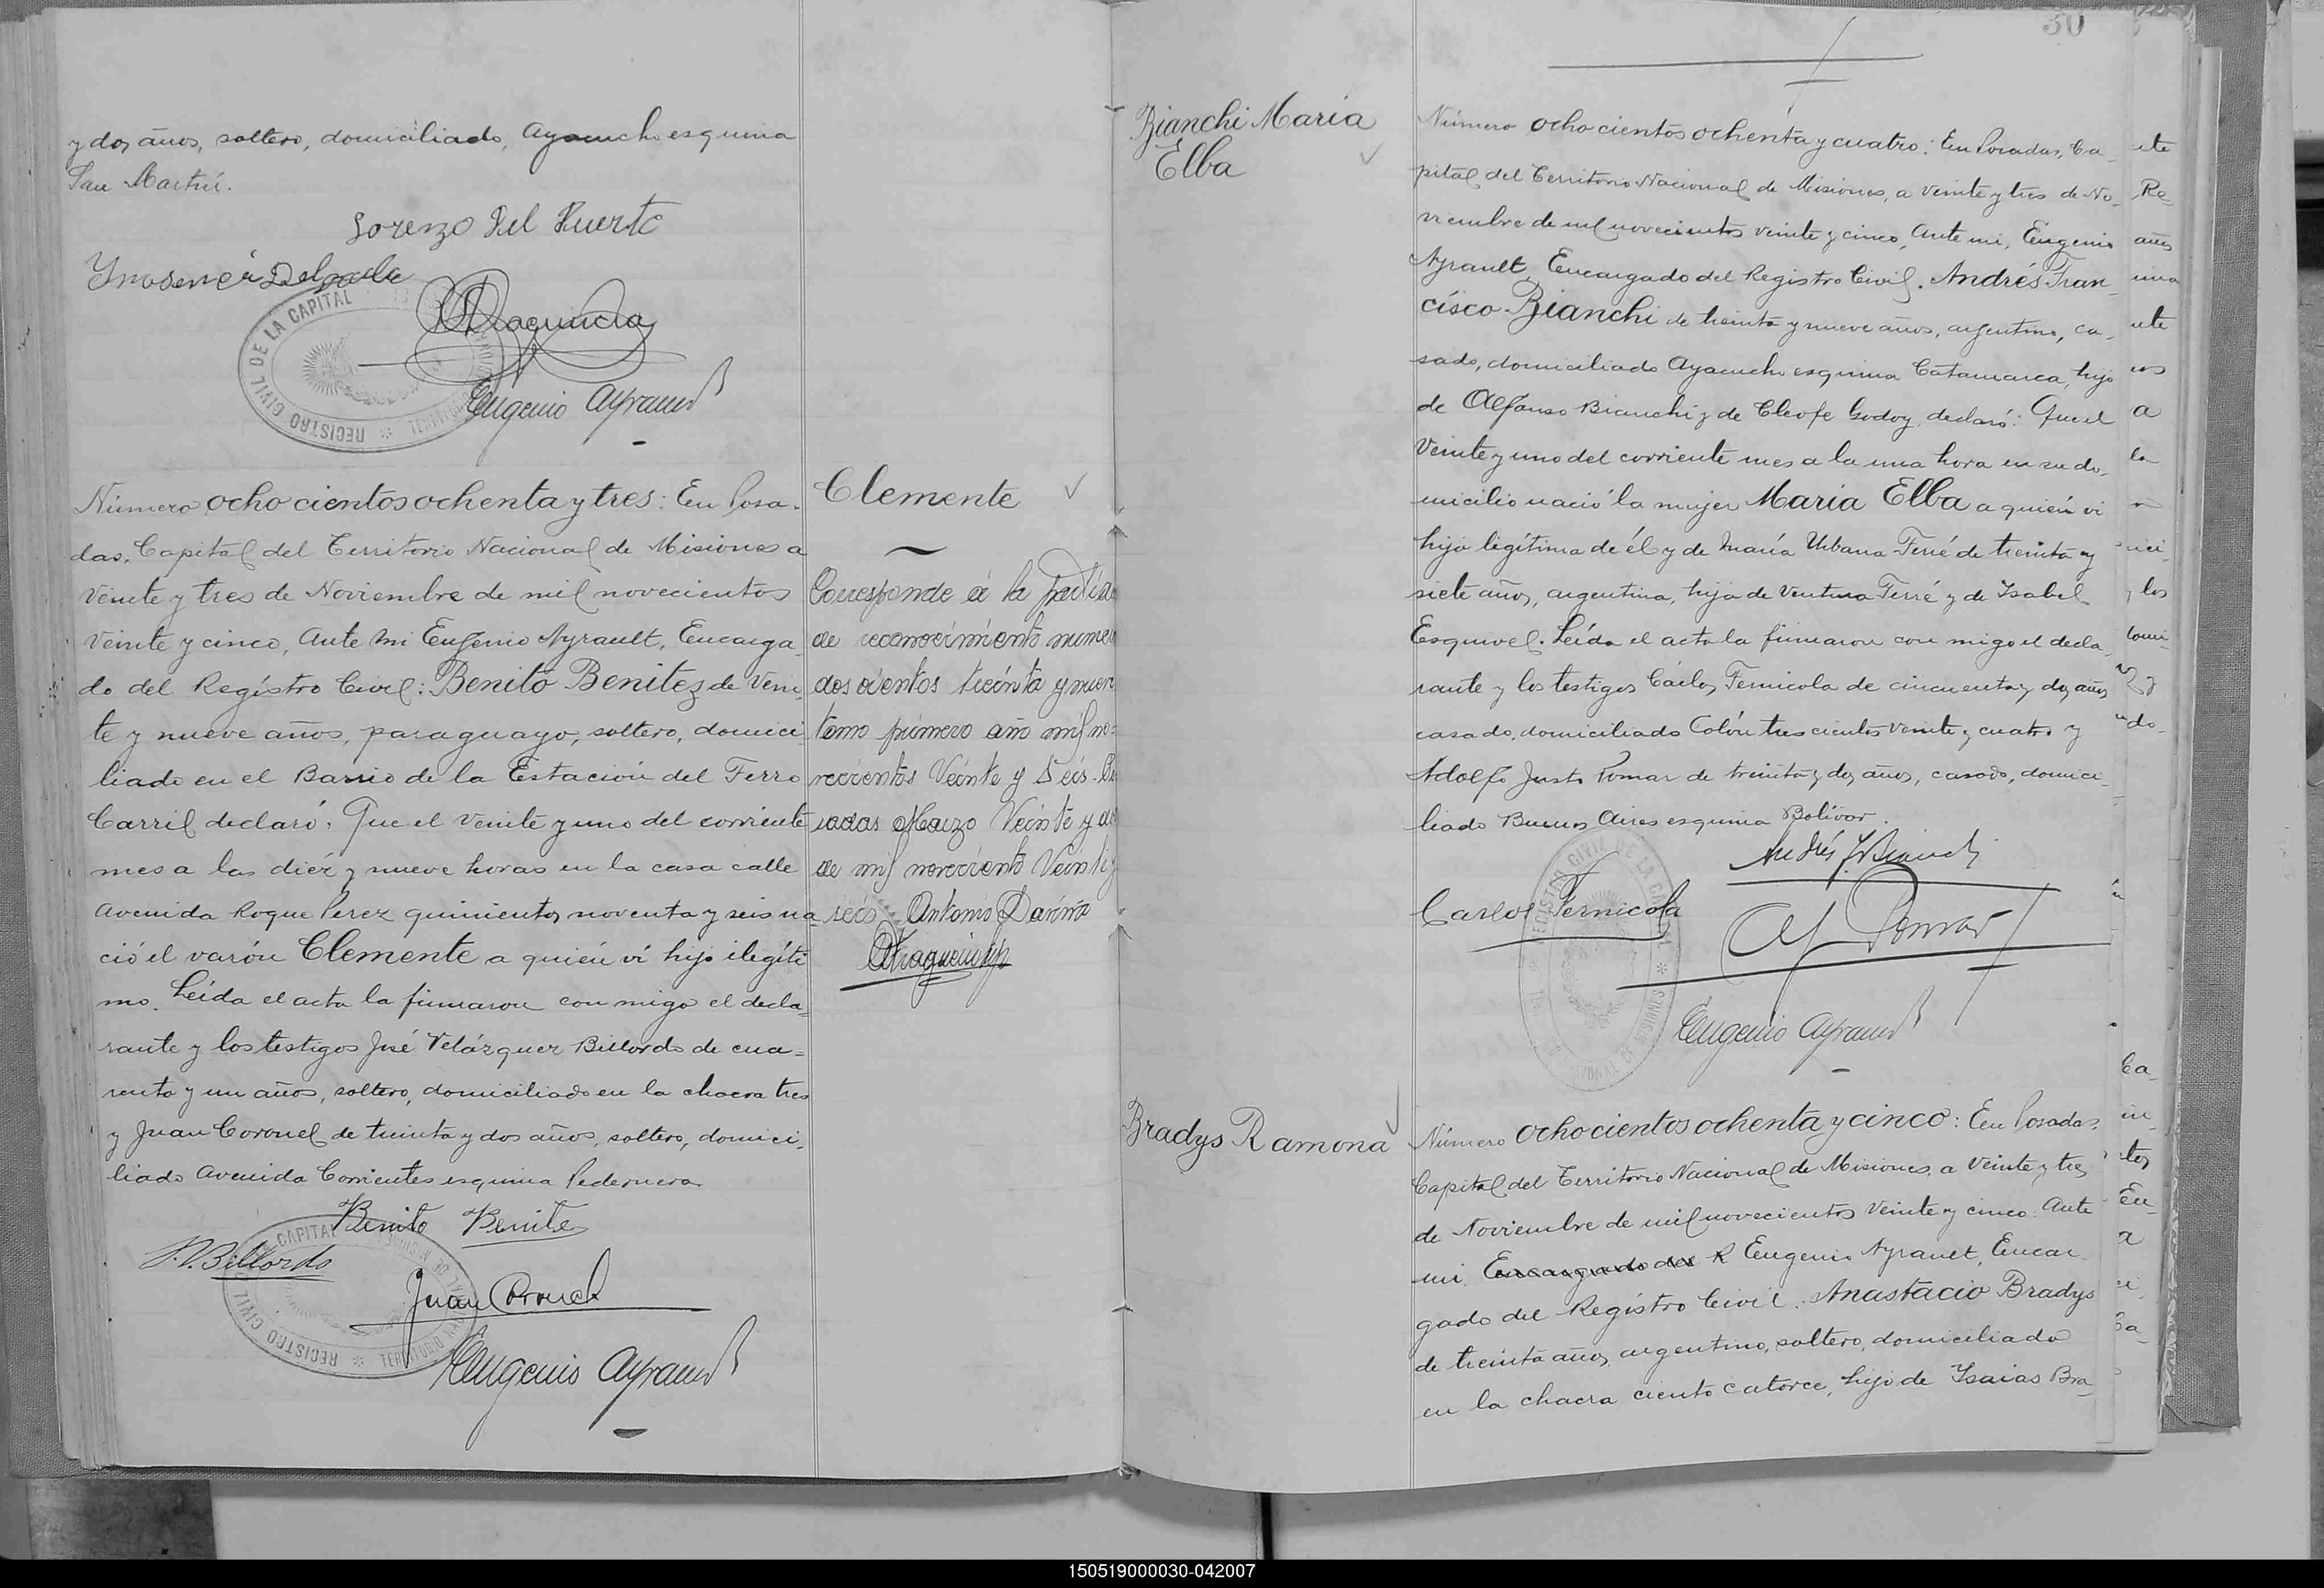 y dos años, soltero, domiciliado, Ayacucho esquina
San Martín.
Lorenzo Del Puerto
Eugenio Ayrault
REGISTRO CIVIL DE LA CAPITAL
Número ochocientos ochenta y tres: En Posa-
das, Capital del Territorio Nacional de Misiones a
veinte y tres de Noviembre de mil novecientos
veinte y cinco, Ante mi Eugenio Ayrault, Encarga-
do del Registro Civil: Benito Benitez de vein-
te y nueve años, paraguayo, soltero, domici-
liado en el Barrio de la Estación del Ferro
Carril declaró: Que el veinte y uno del corriente
mes a las diez y nueve horas en la casa calle
Avenida Roque Perez quinientos noventa y seis na-
ció el varón Clemente a quién ví hijo ilegíti-
mo. Leída el acta la firmaron con migo el decla-
rante y los testigos José Velázquez Billordo de cua-
renta y un años, soltero, domiciliado en la chacra tres
y Juan Coronel de treinta y dos años, soltero, domici-
liado Avenida Corrientes esquina Pedernera
Benito Benite
J.V. Billordo
Juan Coronel
Eugenio Ayrault
REGISTRO CIVIL CAPITAL
Clemente
Corresponde a la partida
de reconocimiento numero
doscientos treinta y nueve
tomo primero año mil no-
vecientos Veinte y Seis. Po
sadas Marzo Veinte y
de mil novecientos Veinti y
seis Antonio
50
Bianchi María
Elba
Número ochocientos ochenta y cuatro: En Posadas, Ca-
pital del Territorio Nacional de Misiones, a veinte y tres de No-
viembre de mil novecientos veinte y cinco, Ante mi, Eugenio
Ayrault, Encargado del Registro Civil. Andrés Fran-
cisco Bianchi de treinta y nueve años, argentino, ca-
sado, domiciliado Ayacucho esquina Catamarca, hijo
de Alfonso Bianchi y de Cleofe Godoy, declaró: Que el
veinte y uno del corriente mes a la una hora en su do-
micilio nació la mujer María Elba a quién vi
hija legítima de él y de María Urbana Ferré de treinta y
siete años, argentina, hija de Ventura Ferré y de Isabel
Esquivel. Leída el acta la firmaron con migo el decla-
rante y los testigos Cárlos Fernicola de cincuenta y dos años
casado, domiciliado Colón trescientos veinte y cuatro y
Adolfo Justo Pomar de treinta y dos años, casado, domici-
liado Buenos Aires esquina Bolívar.
Andrés F. Bianchi
Carlos Fernicola
A J Pomar
Eugenio Ayrault
Bradys Ramona
Número ochocientos ochenta y cinco: En Posadas,
Capital del Territorio Nacional de Misiones, a veinte y tres
de Noviembre de mil novecientos veinte y cinco. Ante
mi. Encargado del R Eugenio Ayrault, Encar-
gado del Registro Civil. Anastacio Bradys
de treinta años, argentino, soltero, domiciliado
en la chacra ciento catorce, hijo de Isaias Bra-
150519000030-042007